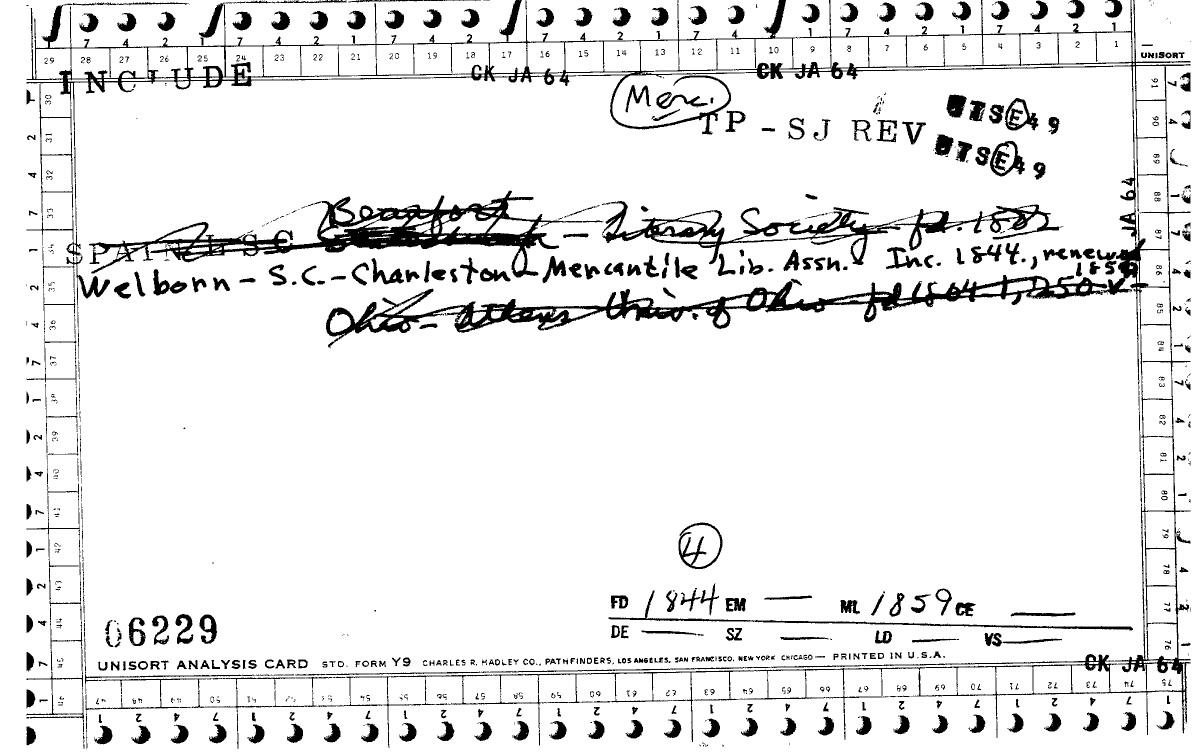 7 4 2 1 7 4 2 1 7 4 2 1 7 4 2 1 7 4 2 1 7 4 2 1 7 4 2 1
29 28 27 26 25 24 23 22 21 20 19 18 17 16 15 14 13 12 11 10 9 8 7 6 5 4 3 2 1 UNISORT
INCLUDE CK JA 64 CK JA 64
Merc.
TP - SJ REV
UTSE49
UTSE49
JA 64
Beaufort
SPAIN - Literary Society - fd. 18
Welborn - S.C. - Charleston - Mercantile Lib. Assn. - Inc. 1844., renewed
1859
Ohio - Athens Univ. of Ohio - fd 1804 1,250 v -
4
FD 1844 EM — ML 1859 CE —
DE — SZ — LD — VS —
06229
UNISORT ANALYSIS CARD STD. FORM Y9 CHARLES R. HADLEY CO., PATHFINDERS, LOS ANGELES, SAN FRANCISCO, NEW YORK CHICAGO — PRINTED IN U.S.A.
CK JA 64
47 48 49 50 51 52 53 54 55 56 57 58 59 60 61 62 63 64 65 66 67 68 69 70 71 72 73 74 75
1 2 4 7 1 2 4 7 1 2 4 7 1 2 4 7 1 2 4 7 1 2 4 7 1 2 4 7 1